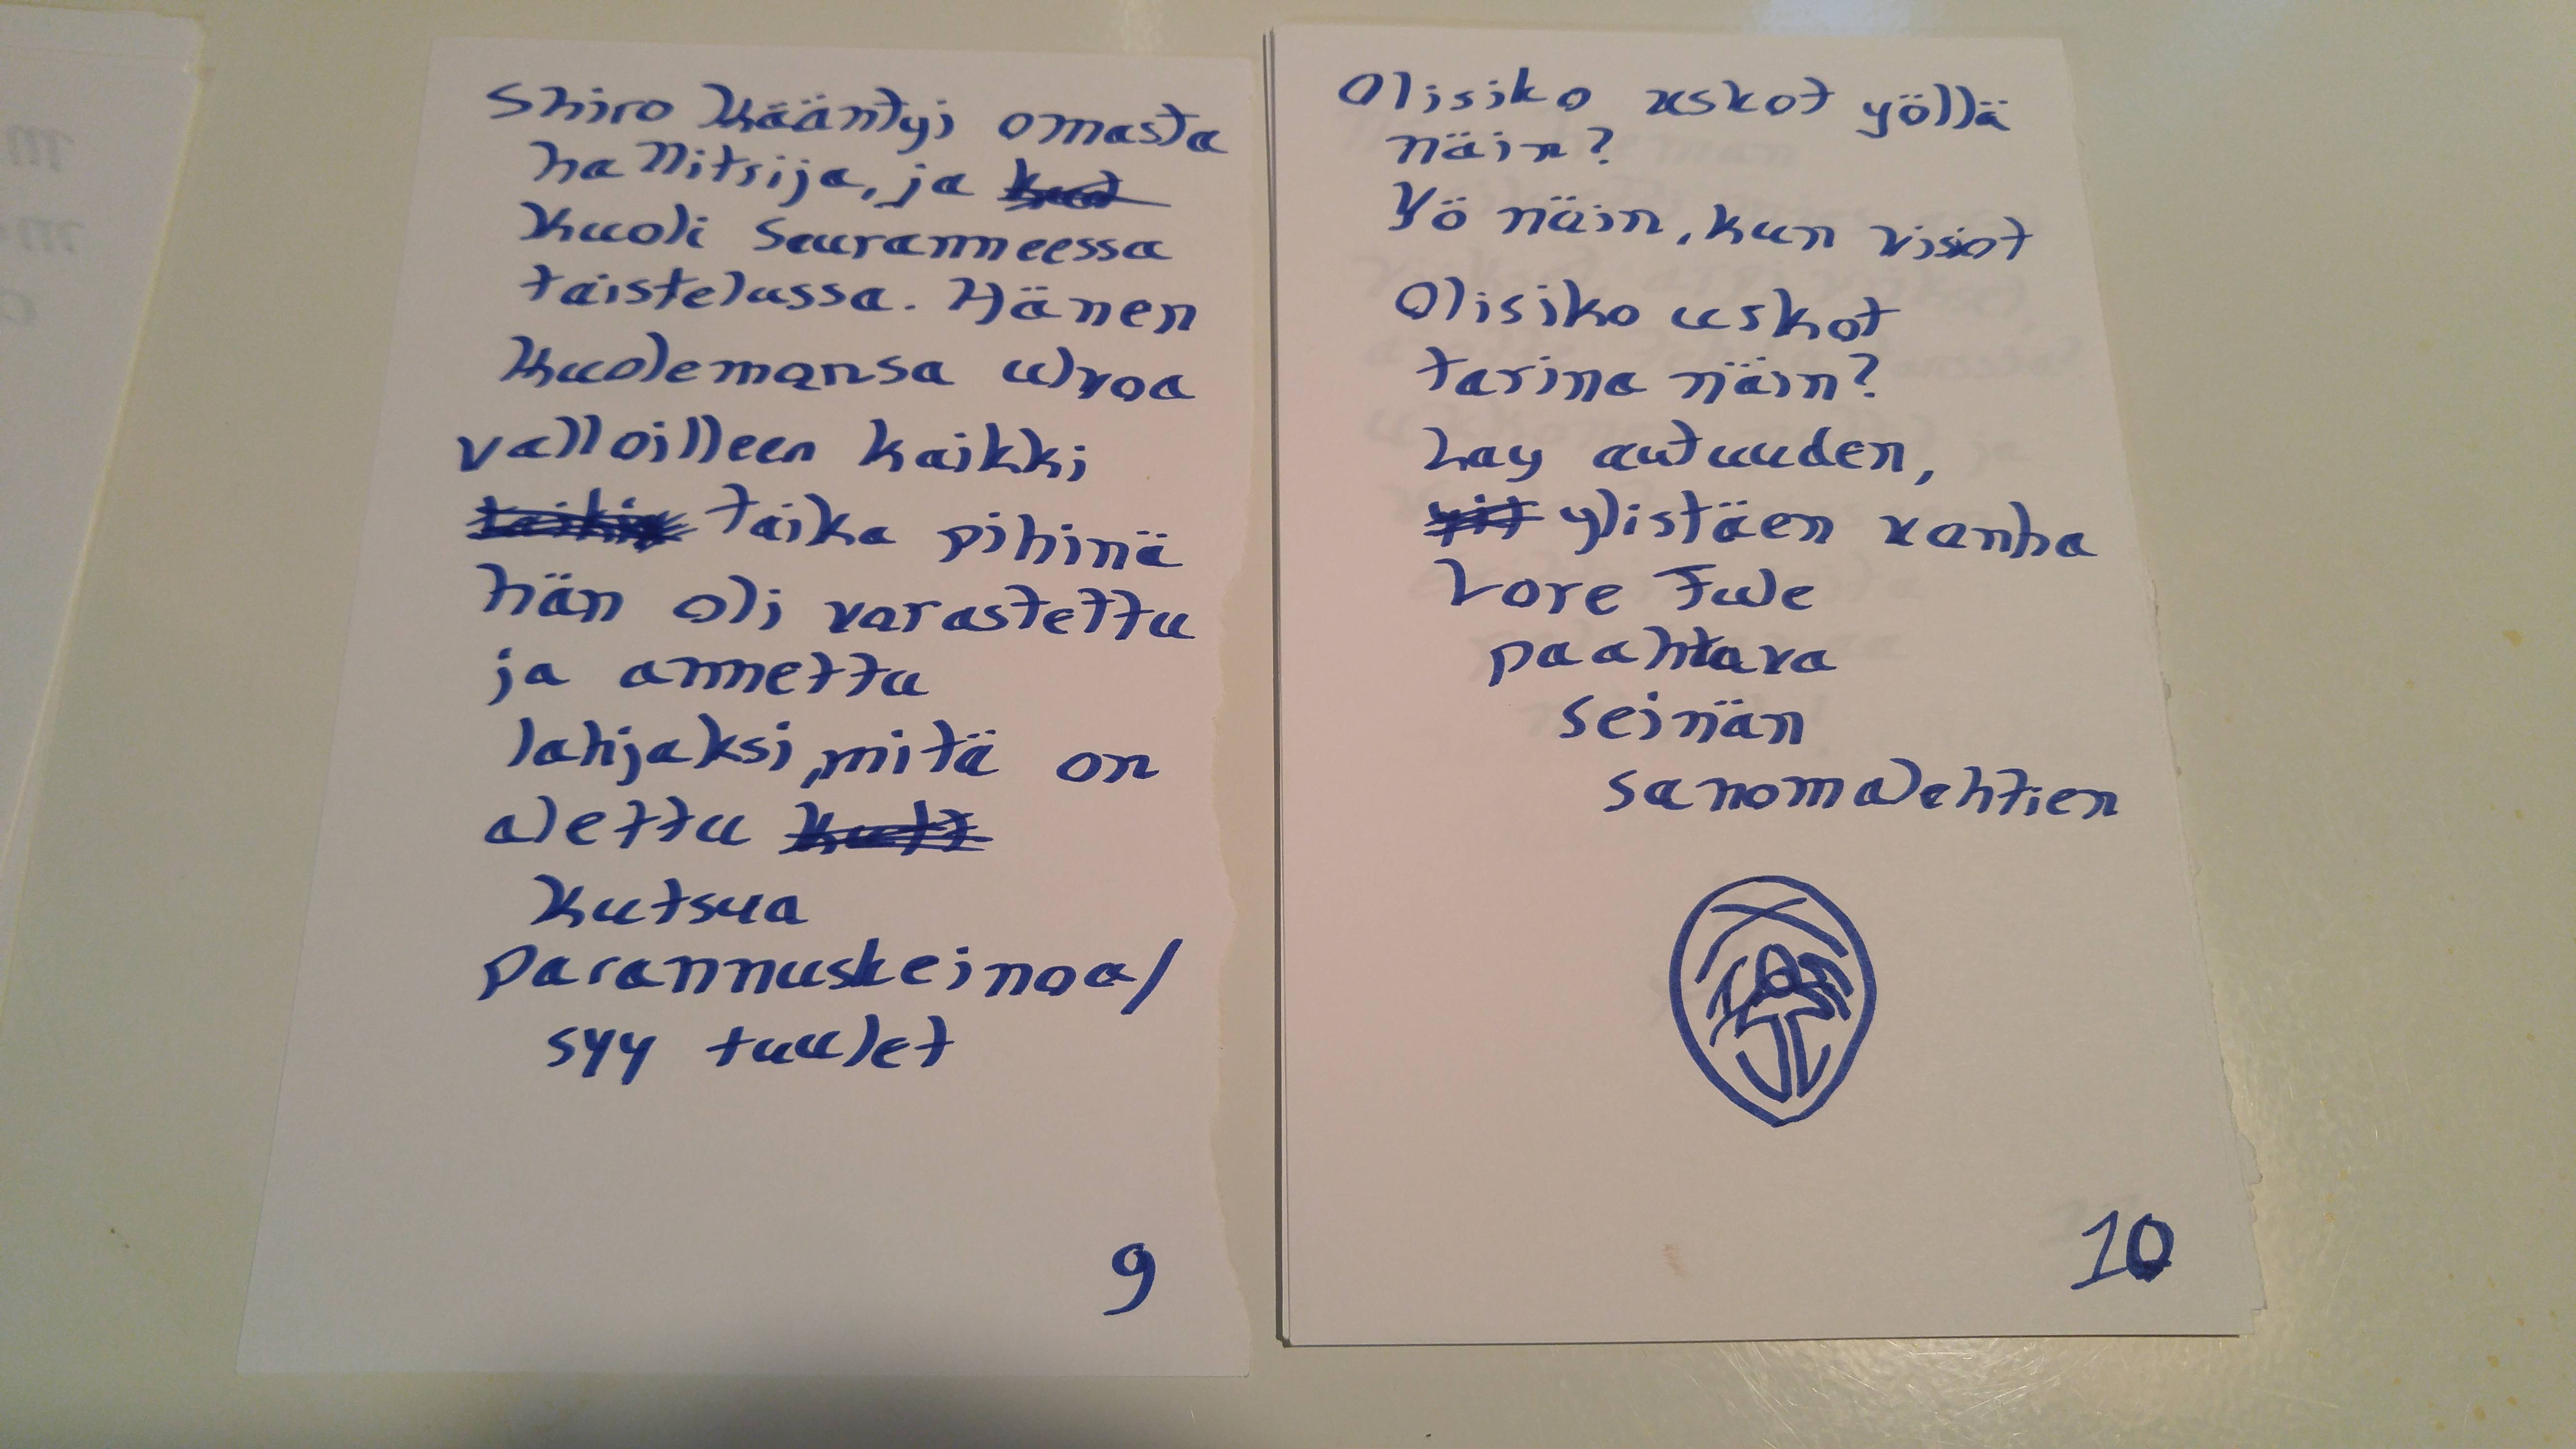 Shiro kääntyi omasta
hallitsija, ja
kuoli seuranneessa
taistelussa. Hänen
kuolemansa ulvoa
valloilleen kaikki
taika pihinä
hän oli varastettu
ja annettu
lahjaksi, mitä on
alettu
kutsua
parannuskeinoa/
syy tuulet
9
Olisiko uskot yöllä
näin?
Yö näin, kun visiot
Olisiko uskot
tarina näin?
Lay autuuden,
ylistäen vanha
Lore Tule
paahtava
seinän
sanomalehtien
10